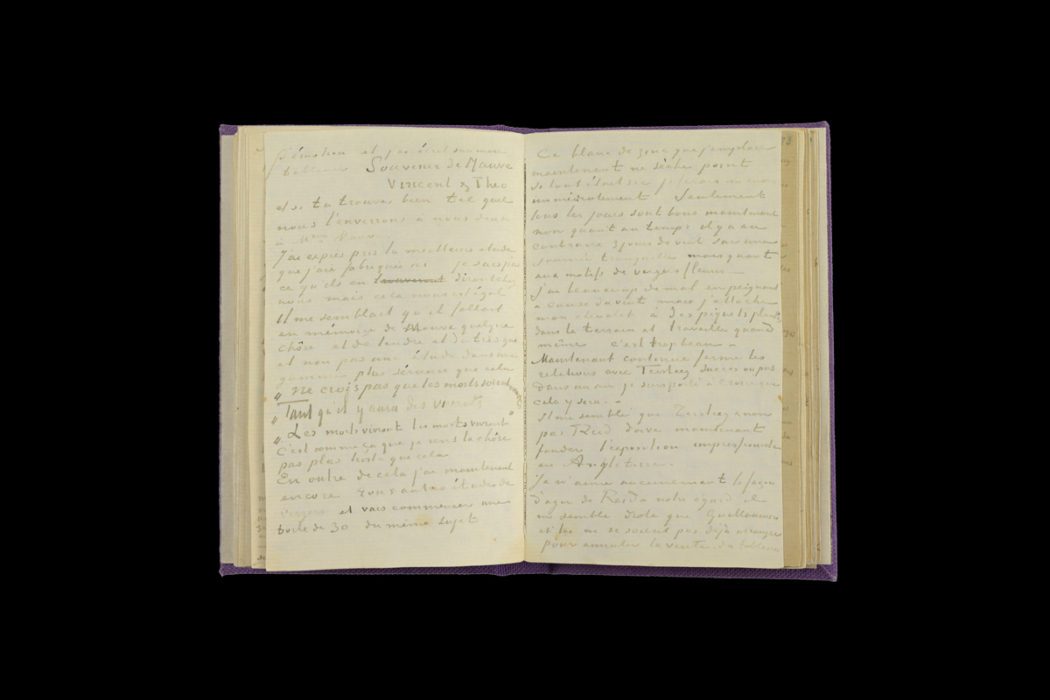 d'émotion et j'ai écrit sur mon
tableau Souvenir de Mauve
Vincent & Theo
et si tu trouves bien tel quel
nous l'enverrons à nous deux
à Mme Mauve
J'ai exprès pris la meilleure étude
que j'aie fabriquée ici je sais pas
ce qu'ils en diront chez
nous mais cela nous est égal
Il me semblait qu'il fallait
en mémoire de Mauve quelque
chôse et de tendre et de très gai
et non pas une étude dans une
gamme plus sérieuse que cela
"Ne crois pas que les morts soient morts
"Tant qu'il y aura des vivants
"Les morts vivront les morts vivront"
C'est comme ça que je sens la chôse
pas plus triste que cela
En outre de cela j'ai maintenant
encore autres études de
vergers et vais commencer une
toile de 30 du même sujet
Ce blanc de zinc que j'emploie
maintenant ne sèche point
si tout était sec je ferais un envoi
immédiatement Seulement
tous les jours sont bons maintenant
non quant au temps il y a au
contraire 3 jours de vent sur une
journée tranquille mais quant
aux motifs de vergers fleuris
j'ai beaucoup de mal en peignant
à cause du vent mais j'attache
mon chevalet à des piquets plantés
dans le terrain et travaille quand
même c'est trop beau
Maintenant continue ferme les
relations avec Tersteeg succès ou pas
dans un an je suis porté à croire que
cela y sera.
Il me semble que Tersteeg non
pas Reid doive maintenant
fonder l'exposition impressionniste
en Angleterre.
Je n'aime aucunement la façon
d'agir de Reid à notre égard et
me semble drôle que Guillaumin
et lui ne se soient pas déjà arrangés
pour annuler la vente du tableau